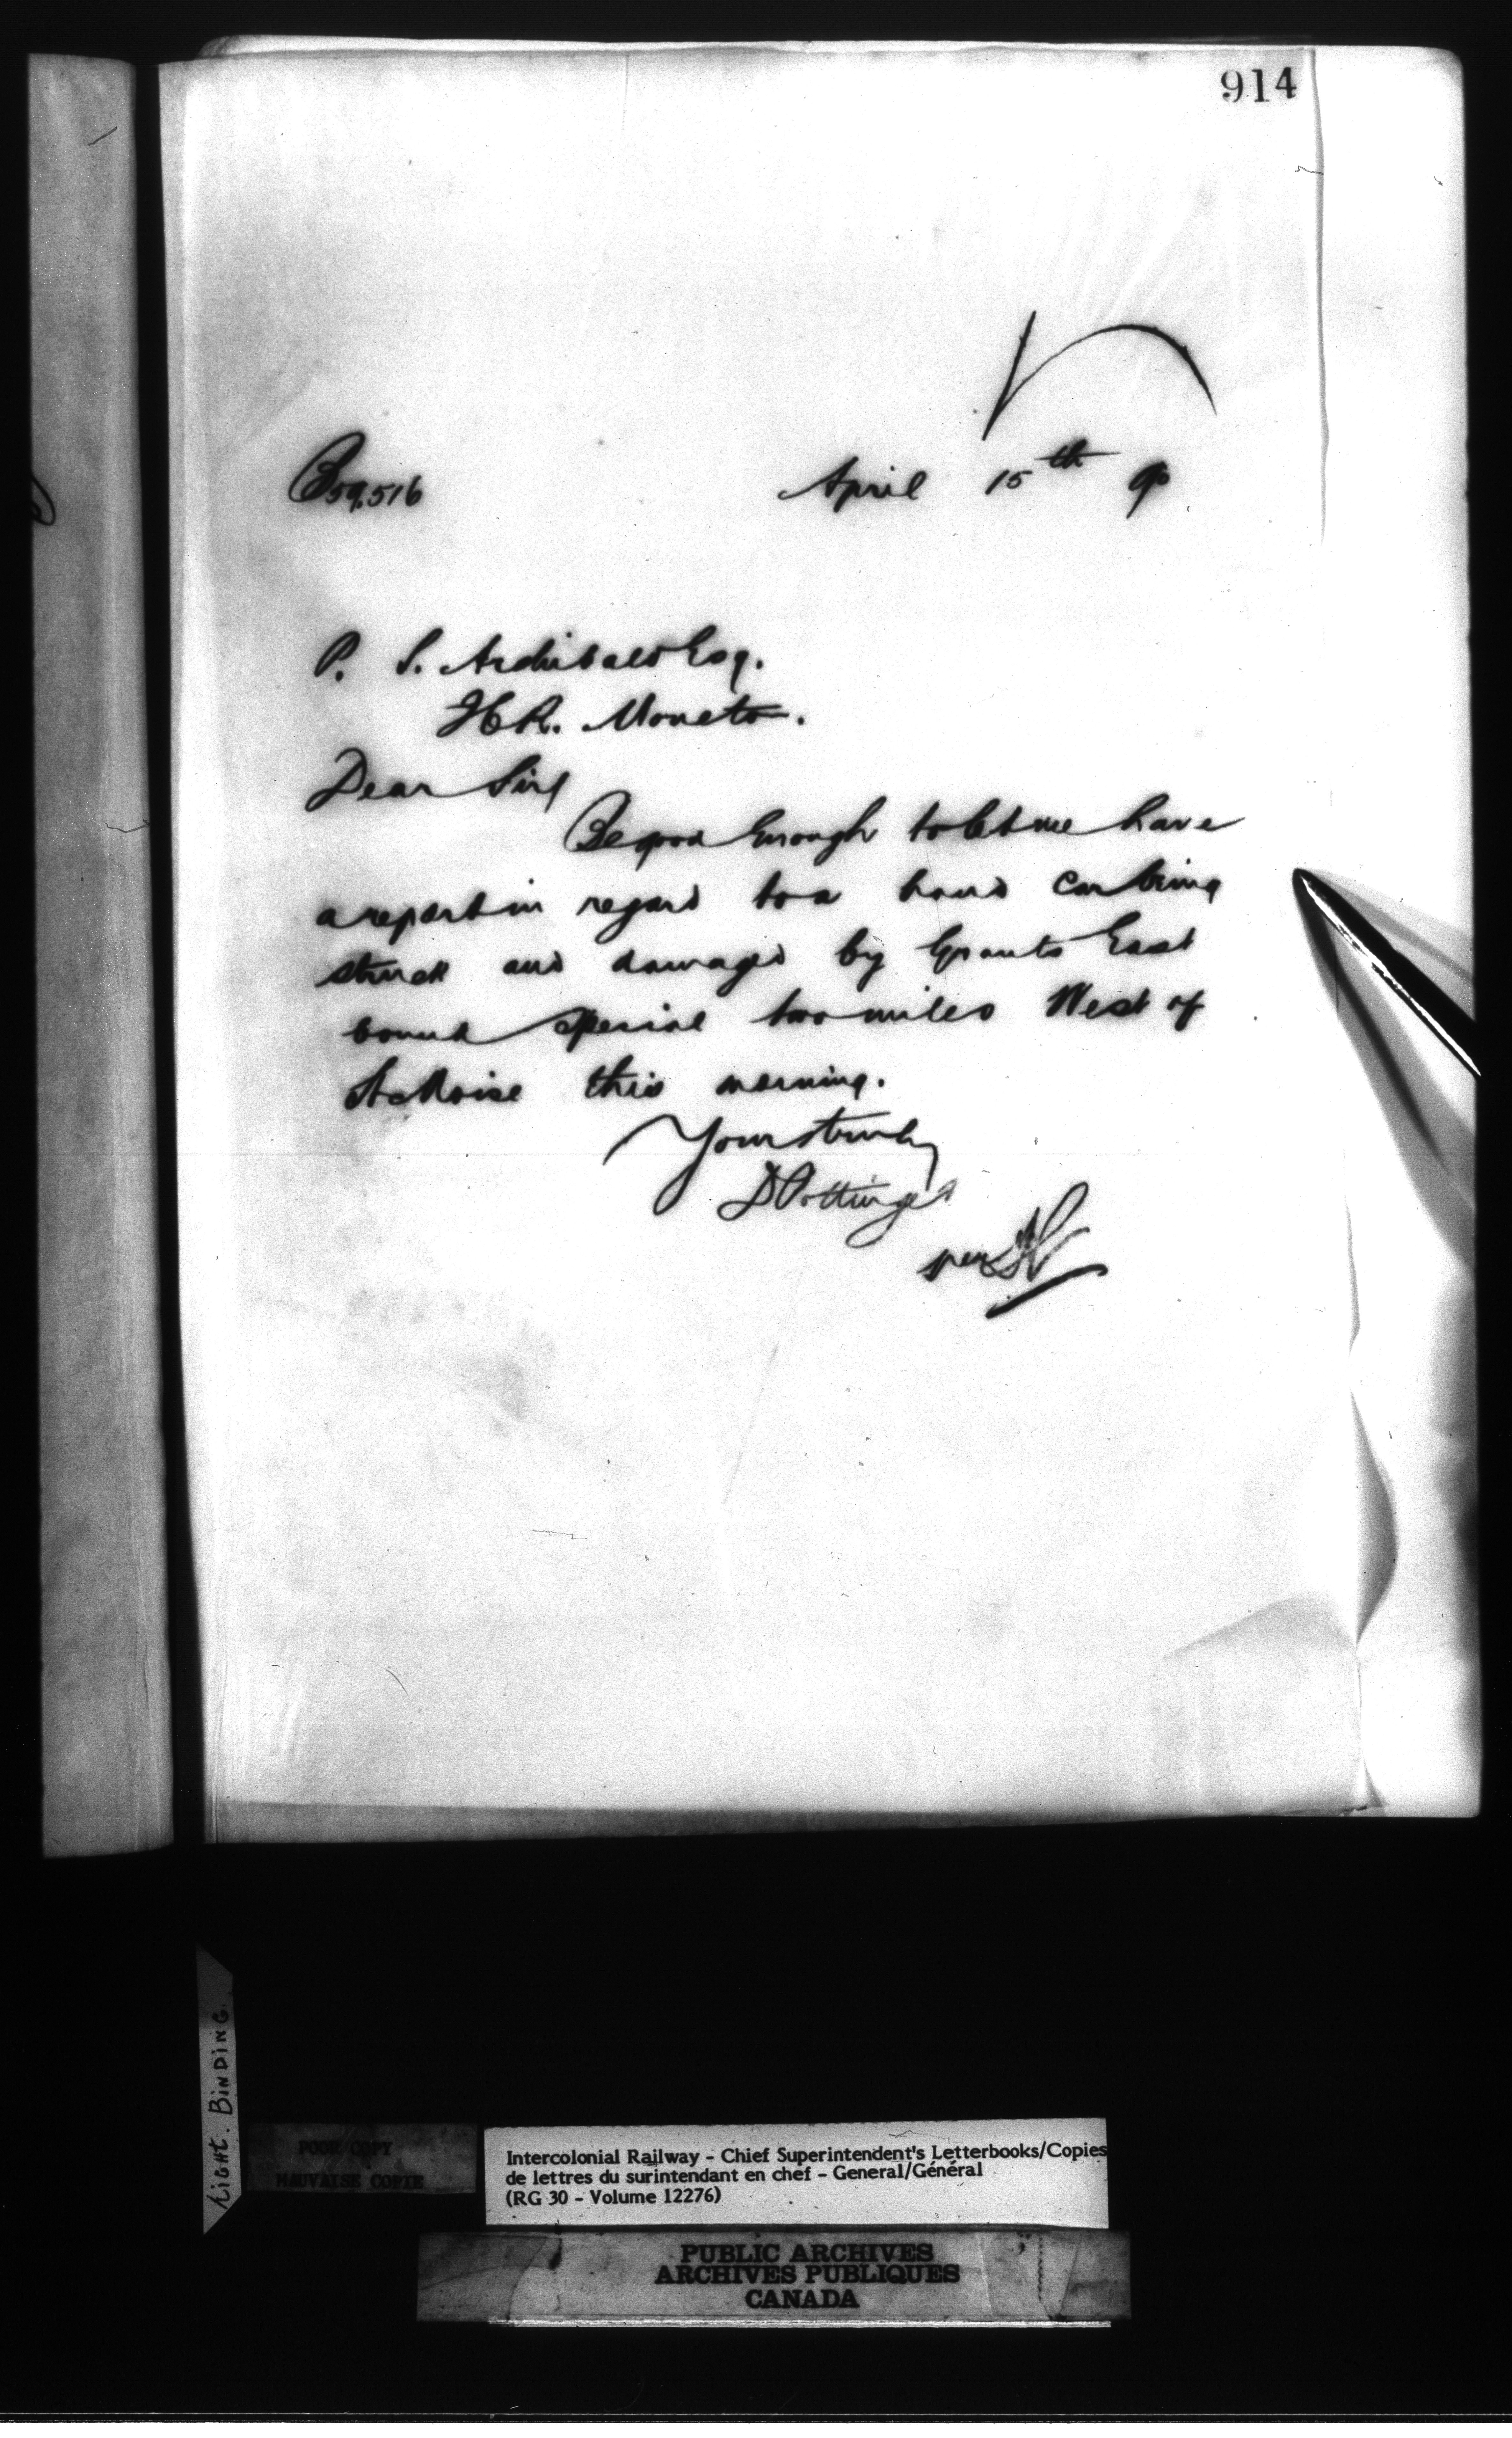 914
B59,516 April 15th 90
P. S. Archibald Esq.
Moncton.
Dear Sir
Be good Enough to let me have
a report in regard to a hand Car being
struck and damaged by Grants East
bound Special two miles West of
St Moise this morning.
Yours truly
D Pottinger
per
Light. Binding.
POOR COPY
MAUVAISE COPIE
Intercolonial Railway - Chief Superintendent's Letterbooks/Copies
de lettres du surintendant en chef - General/Général
(RG 30 - Volume 12276)
PUBLIC ARCHIVES
ARCHIVES PUBLIQUES
CANADA